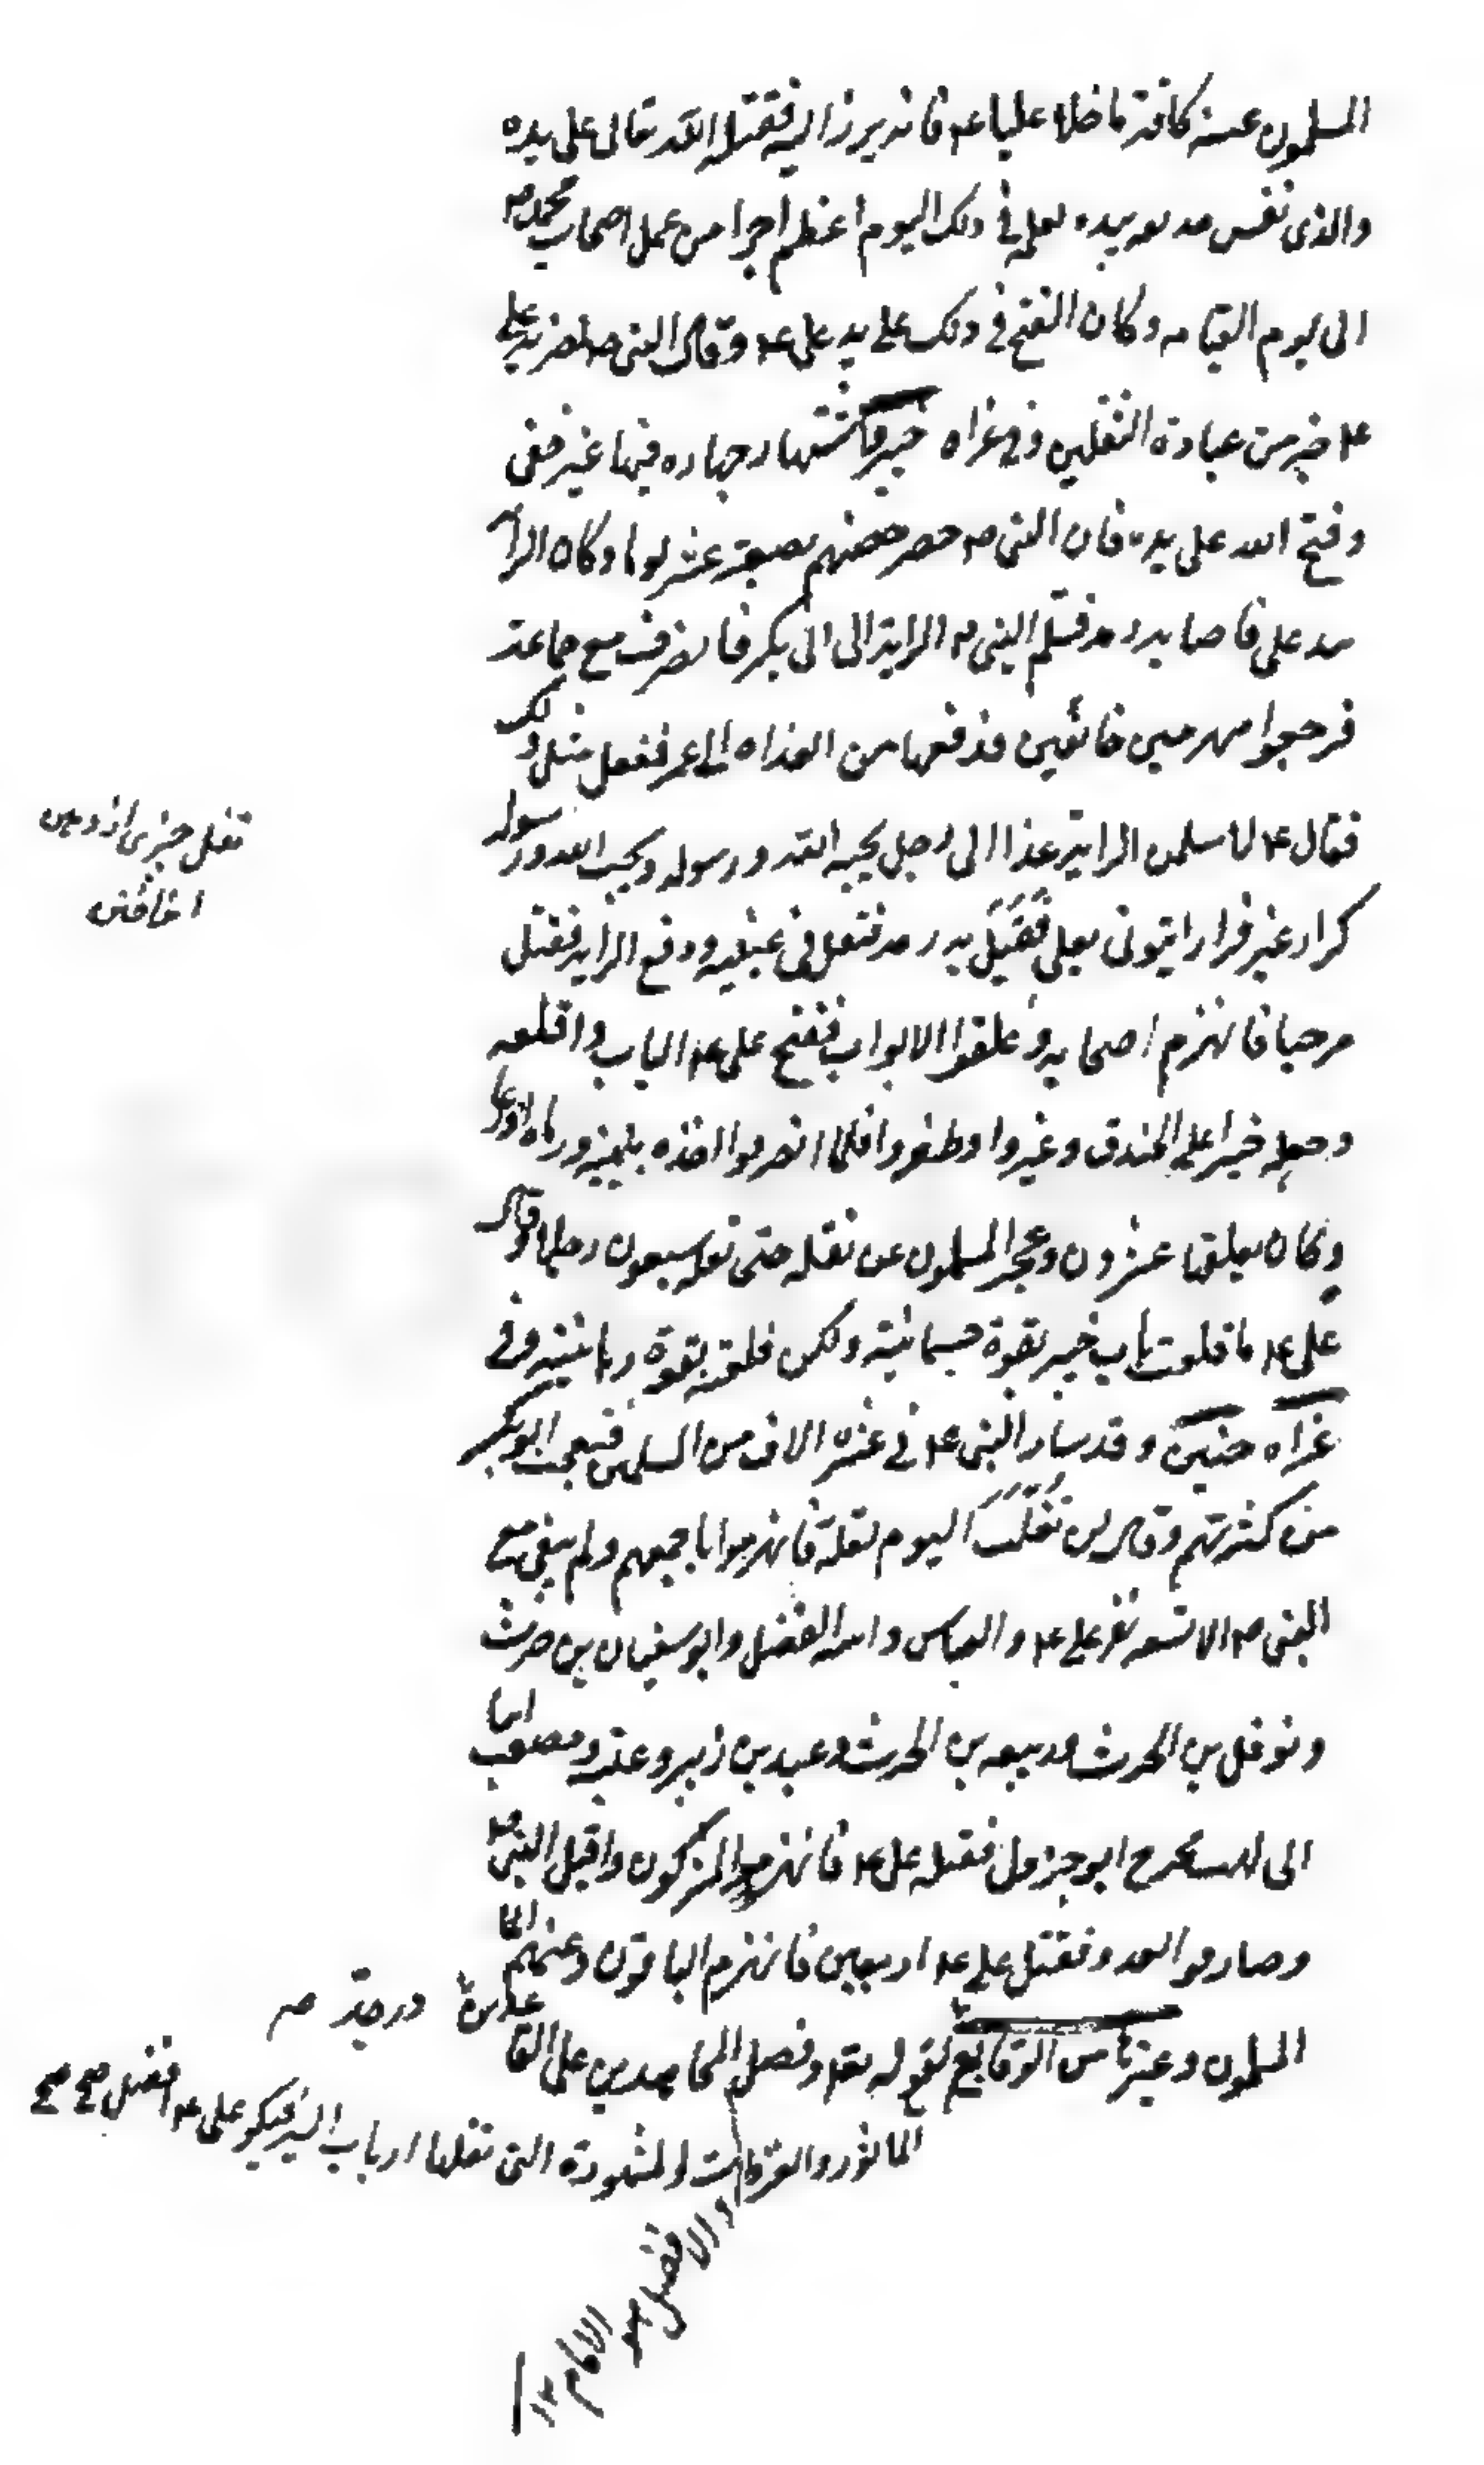 المسلمون عنه كافة ما خلا عليا عه فانه برز اليه فقتله الله تعالى على يده
والذى نفس حذيفه بيده لعمله فى ذلك اليوم اعظم اجرا من عمل اصحاب محمد صه
الى يوم القيامه وكان الفتح فى ذلك على يد على عه وقال النبى صه لضربة على
عه خير من عبادة الثقلين وفى غزاه خيبر واشتهار جهاده فيها غير خفى
وفتح الله على يده فان النبى صه حصر حصنهم بضعة عشر يوما وكان الراية
بيد على فاصابه رمد فسلم النبى صه الراية الى ابى بكر فانصرف مع جماعة
فرجعوا منهزمين خائفين فدفعها من الغداه الى عمر ففعل مثل ذلك
فقال عه لاسلمن الراية غدا الى رجل يحبه الله ورسوله ويحب الله ورسوله
كرار غير فرار ايتونى بعلى فقيل به رمد فتفل فى عينيه ودفع الراية فقتل
مرحبا فانهزم اصحابه وغلقوا الابواب ففتح على عه الباب واقتلعه
وجعله جسرا على الخندق وعبروا وظفروا فلما انصرفوا اخذه بيمينه ورماه اذرعا
وكان يغلقه عشرون وعجز المسلمون عن نقله حتى نقله سبعون رجلا وقال
على عه ما قلعت باب خيبر بقوة جسمانية ولكن قلعته بقوة ربانية وفى
غزاه حنين وقد سار النبى عه فى عشره الاف من المسلمين فتعجب ابو بكر
من كثرتهم وقال لن نغلب اليوم لقلة فانهزموا باجمعهم ولم يبق مع
النبى صه الا تسعه نفر على عه والعباس وابنه الفضل وابو سفيان بن حرث
ونوفل بن الحرث وربيعه بن الحرث وعبد بن زبير وعتبه ومصعب ابنا
ابى لهب فخرج ابو جزول فقتله على عه فانهزم المشركون واقبل النبى صه
وصادموا العدو فقتل على عه اربعين فانهزم الباقون وغنهم
المسلمون وغيرها من الوقايع لقوله تعه وفضل الله المجاهدين على القا
عدين درجة صه
الماثوره والغزوات المشهودة التى نقلها ارباب السير فيكون على عه افضل صح صح
والافضل هو الامام ١٢
نقل چيزى از دهن
انداختن